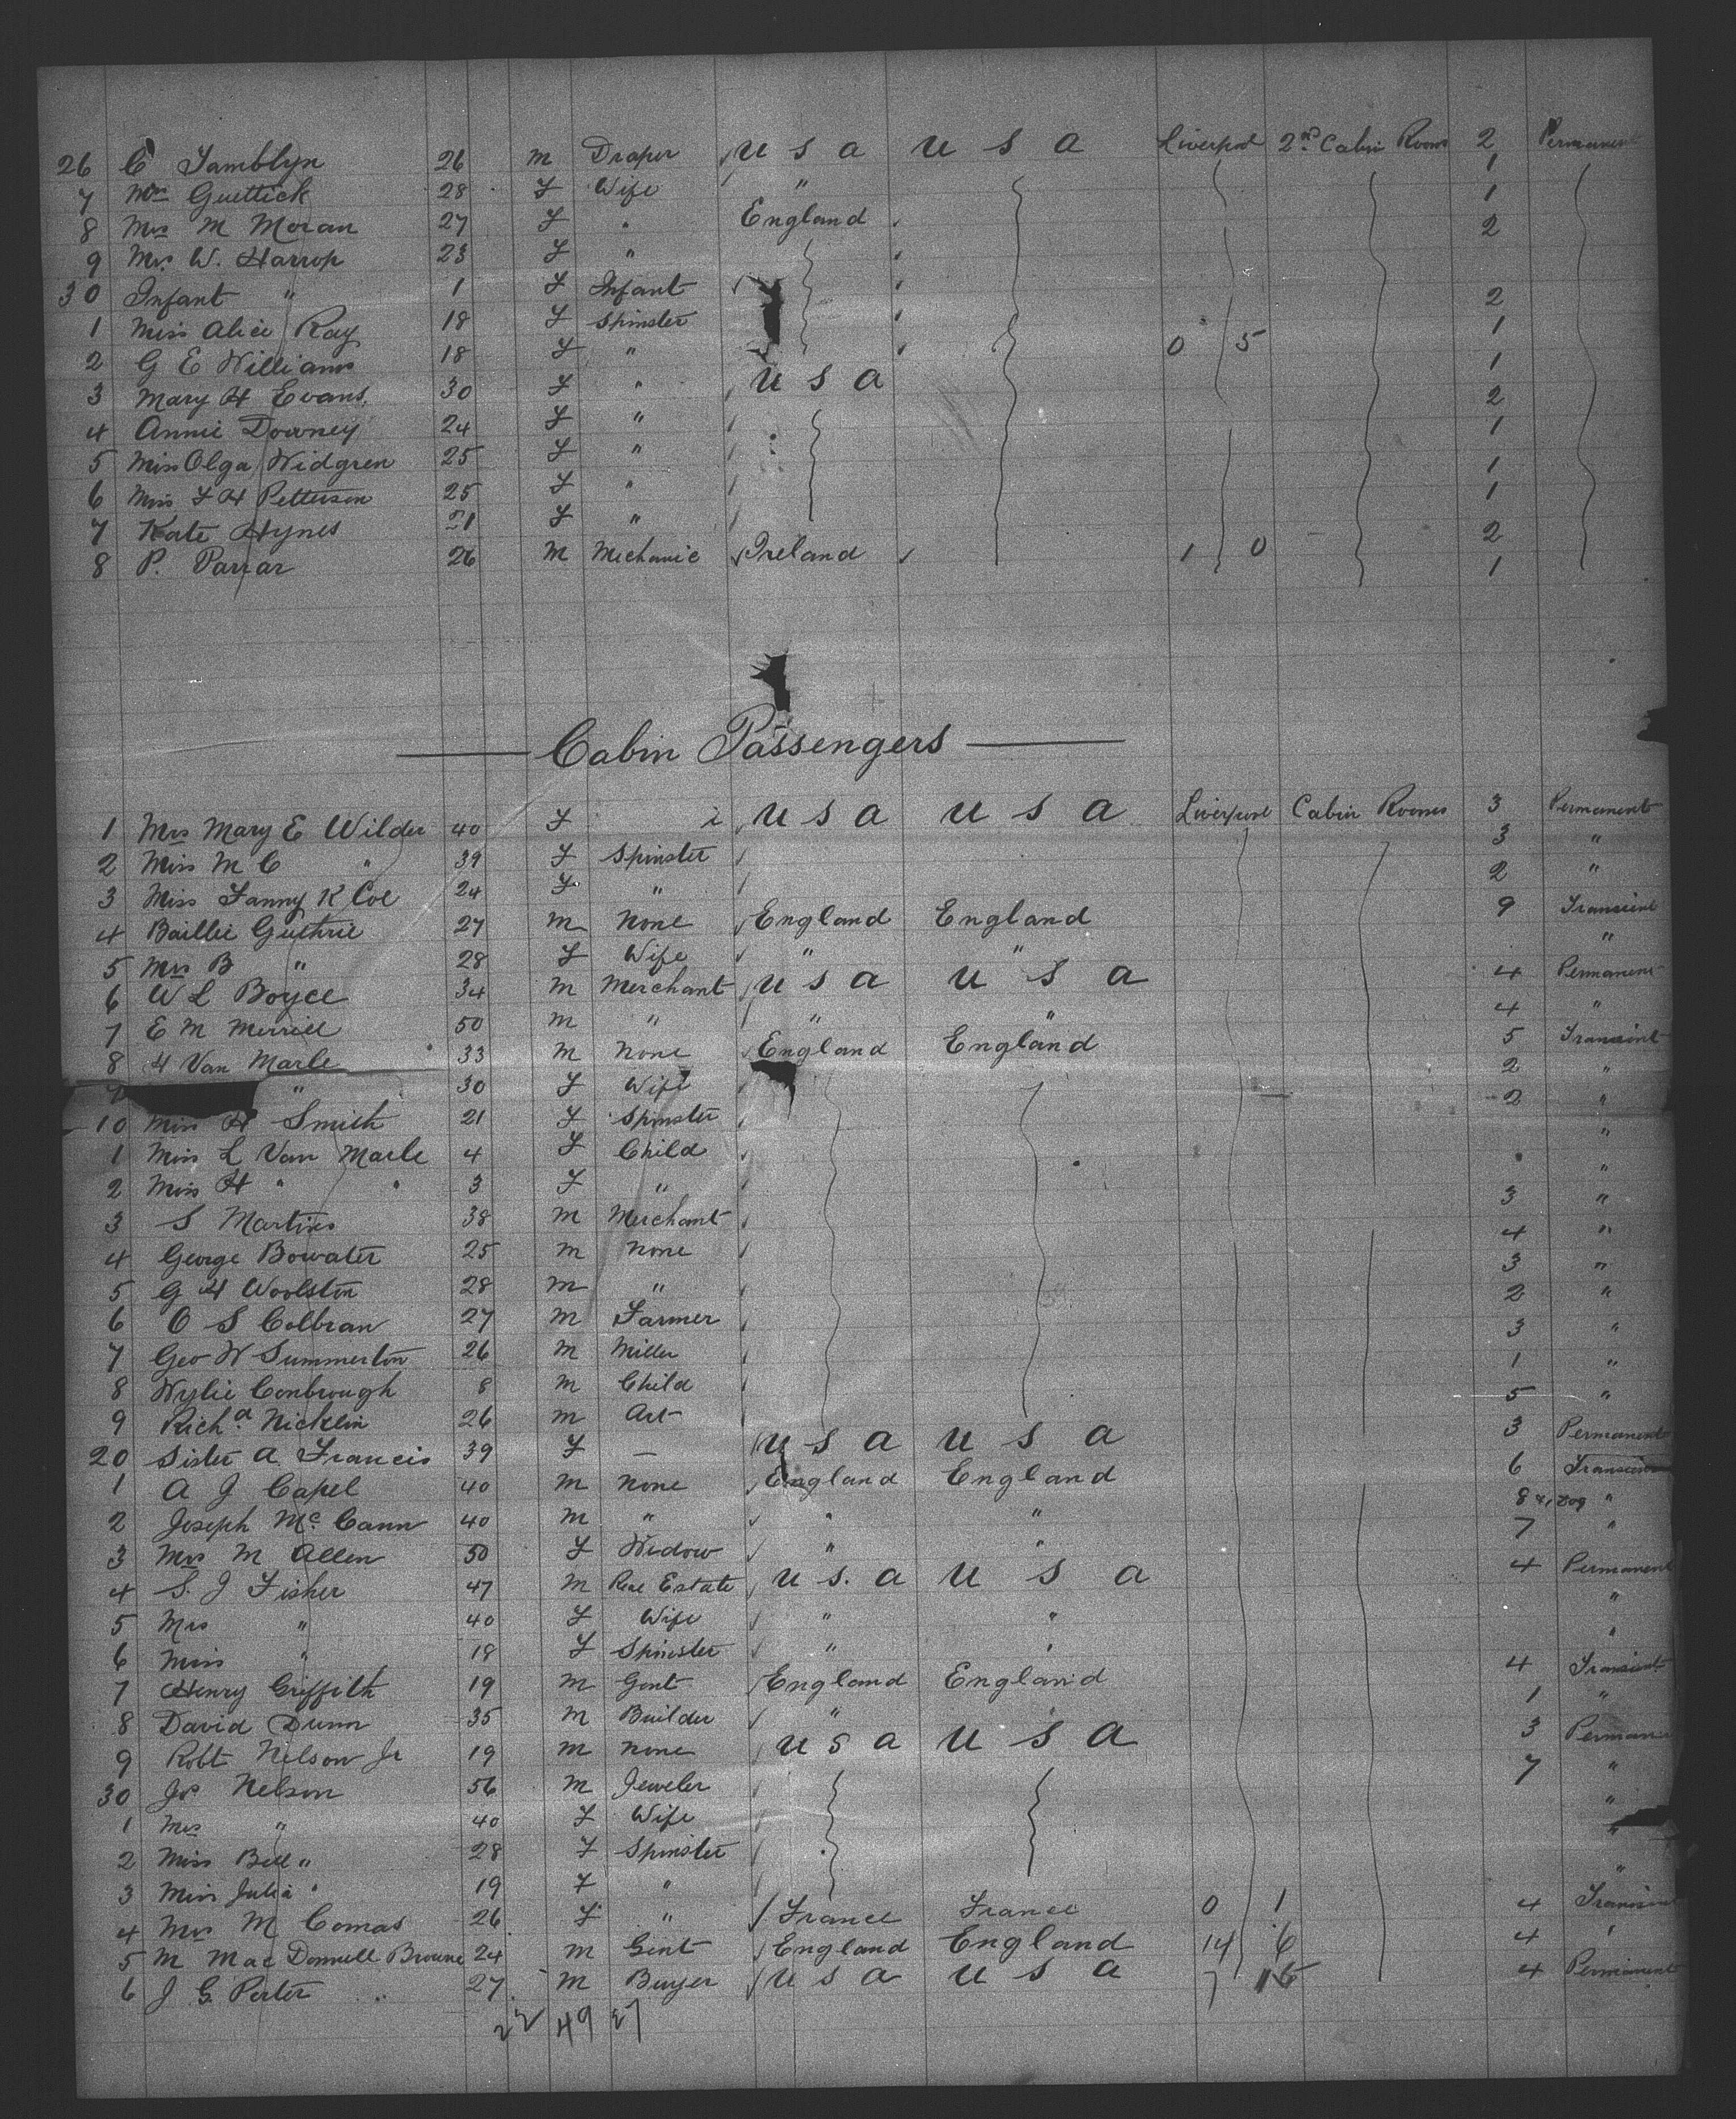 26 C Tamblyn 26 m Draper U S A U S A Liverpool 2nd Cabin Rooms 2 Permanent
7 Mrs Guettick 28 F Wife " 1
8 Mrs M Moran 27 F " England 1
9 Mrs W. Harrop 23 F " 2
30 Infant " 1 F Infant
1 Miss Alice Ray 18 F Spinster 2
2 G E Williams 18 F " 0 5 1
3 Mary H Evans 30 F " U S A 1
4 Annie Downey 24 F " 2
5 Miss Olga Widgren 25 F " 1
6 Miss F H Petterson 25 F " 1
7 Kate Hynes 21 F " 1
8 P. Parrar 26 M Mechanic Ireland 1 0 2
1
Cabin Passengers
1 Mrs Mary E Wilder 40 F U S A U S A Liverpool Cabin Rooms 3 Permanent
2 Miss M C " 39 F Spinster 3 "
3 Miss Fanny K Coe 24 F " 2 "
4 Baillie Guthrie 27 m None England England 9 Transient
5 Mrs B " 28 F Wife " " "
6 W L Boyce 34 m Merchant U S A U S A 4 Permanent
7 E M Merrill 50 m " " " 4 "
8 H Van Marle 33 m None England England 5 Transient
" 30 F Wife 2 "
10 Miss H Smith 21 F Spinster 2 "
1 Miss L Van Marle 4 F Child "
2 Miss H " " 3 F " "
3 S Martins 38 m Merchant 3 "
4 George Bowater 25 m None 4 "
5 G H Woolston 28 m " 3 "
6 O S Colbran 27 m Farmer 2 "
7 Geo W Summerton 26 m Miller 3 "
8 Wylie Conbrough 8 m Child 1 "
9 Richd Nicklin 26 m Art 5 "
20 Sister A. Francis 39 F — U S A U S A 3 Permanent
1 A J Capel 40 m None England England 6 Transient
2 Joseph McCann 40 m " " " 8 & Dog "
3 Mrs M Allen 50 F Widow " " 7 "
4 S. J Fisher 47 m Real Estate U S. A U S A 4 Permanent
5 Mrs " 40 F Wife " " "
6 Miss " 18 F Spinster " " "
7 Henry Griffith 19 m Gent England England 4 Transient
8 David Dunn 35 m Builder " 1 "
9 Robt Nelson Jr 19 m None U S A U S A 3 Permanent
30 Js Nelson 56 m Jeweler 7 "
1 Mrs " 40 F Wife "
2 Miss Bell " 28 F Spinster "
3 Miss Julia " 19 F " "
4 Mrs M Comas 26 F " France France 0 1 4 Transient
5 M Mac Donnell Browne 24 m Gent England England 14 6 4 "
6 J G Porter 27 m Buyer U S A U S A 7 15 4 Permanent
22 49 27